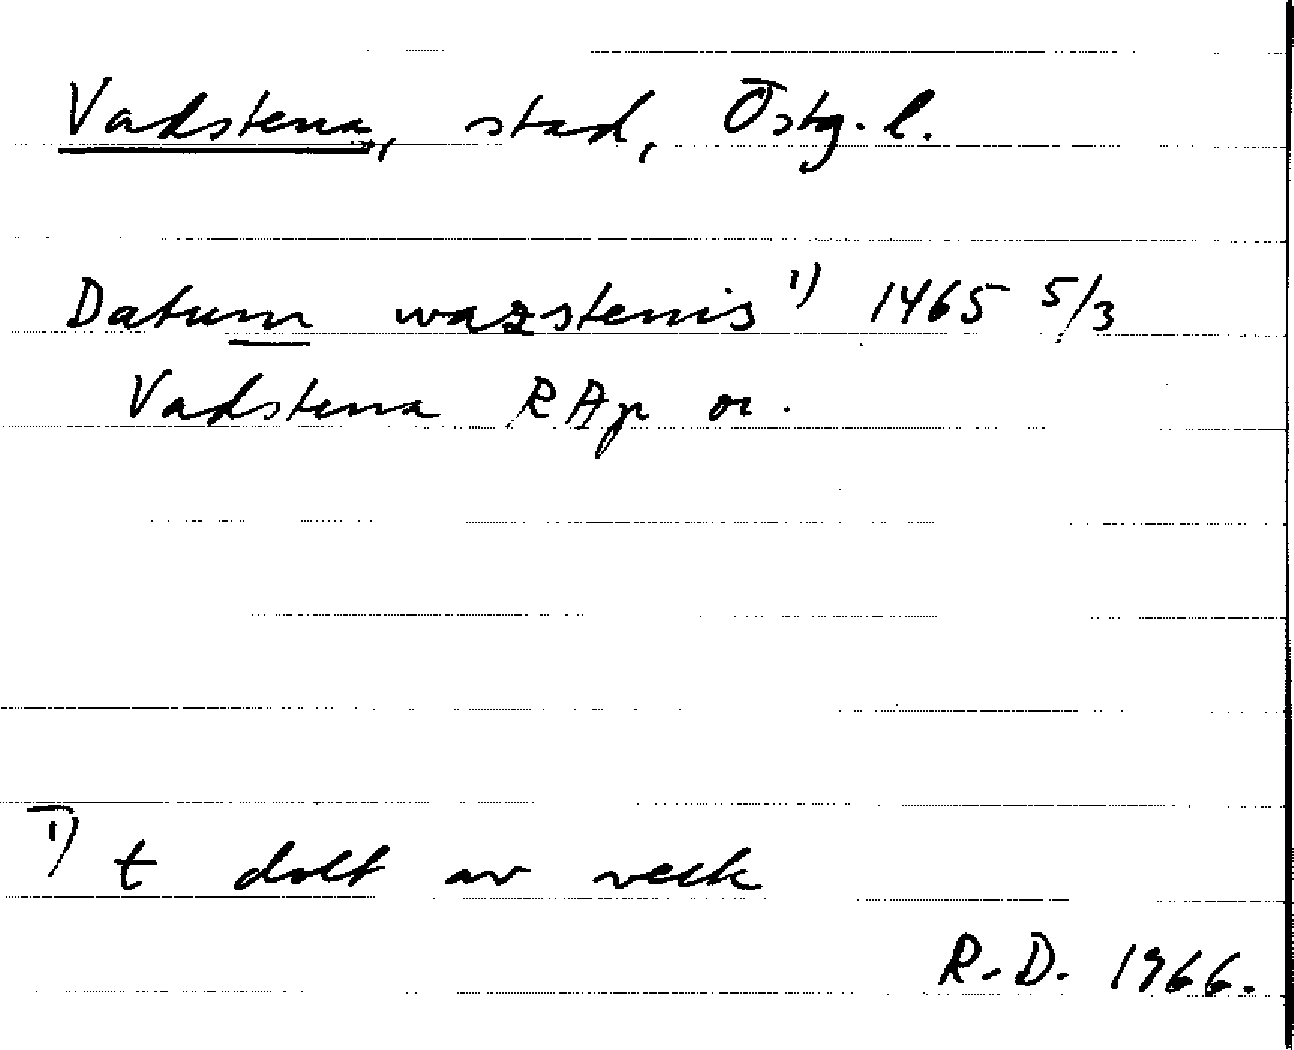 Vadstena, stad, Östg. l.
Datum wazstenis 1) 1465 5/3
Vadstena RAp or.
1) t dolt av veck
R.D. 1966.